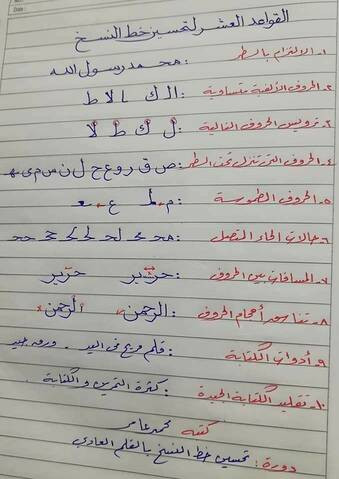 القواعد العشر لتحسين خط النسخ
١- الالتزام بالسطر : محمد رسول الله
٢- الحروف الألفية متساوية : ا ل ك ا لا ط
٣- ترويس الحروف العالية : ل ك ط لا
٤- الحروف التي تنزل تحت السطر : ص ق ر و ع ح ل ن س م ى
٥- الحروف المطموسة : م ـع
٦- حالات الحاء المتصل :
٧- المسافات بين الحروف : حرير حرير
٨- تناسب أحجام الحروف : الرحمن الرحمن
٩- أدوات الكتابة : قلم مريح في اليد . ورق جيد
١٠- تقليد الكتابة الجيدة : كثرة التمرين والكتابة .
كتبه محمد عامر
دورة : تحسين خط النسخ بالقلم العادي